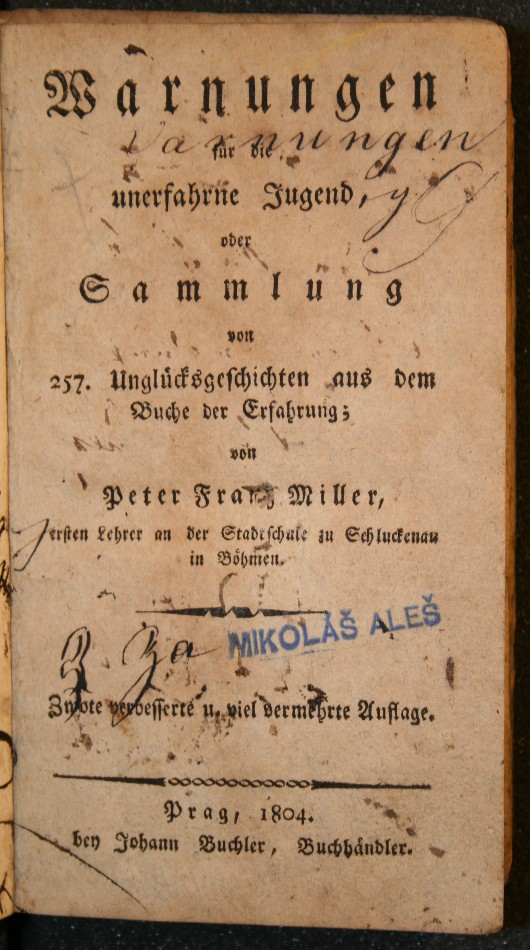 Warnungen
Warnungen
für die
unerfahrne Jugend,
oder
Sammlung
von
257. Unglücksgeschichten aus dem
Buche der Erfahrung;
von
Peter Franz Miller,
ersten Lehrer an der Stadtschule zu Schluckenau
in Böhmen.
MIKOLÁŠ ALEŠ
Zwote verbesserte u. viel vermehrte Auflage.
Prag, 1804.
bey Johann Buchler, Buchhändler.